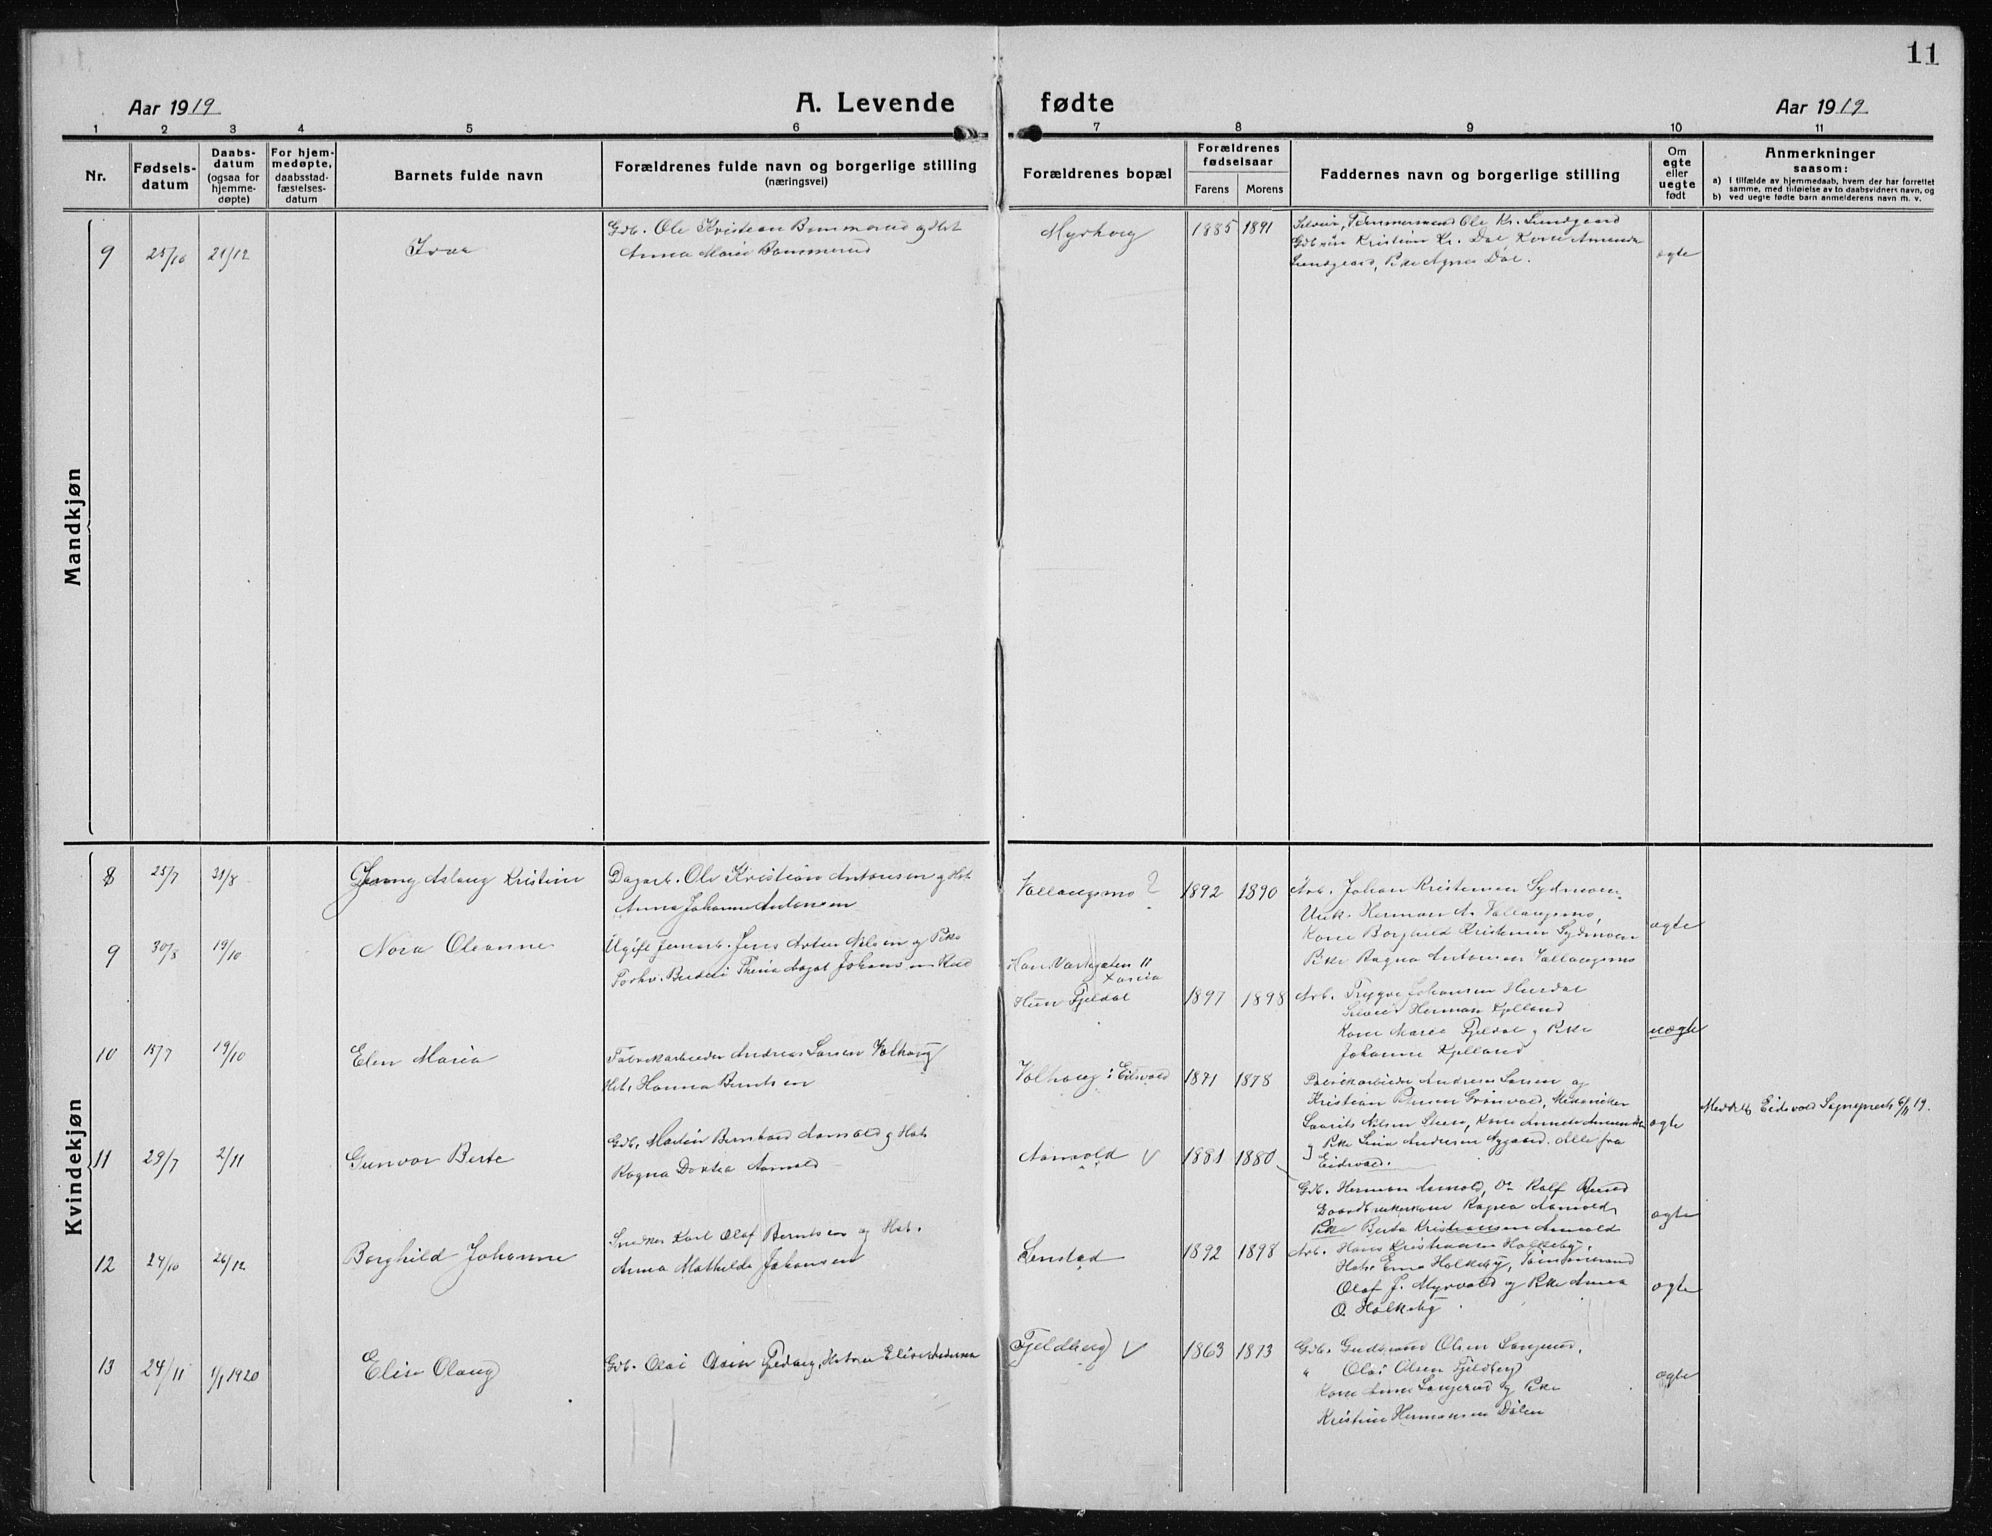 11
Aar 1919
A. Levende fødte
Aar 1919
1 2 3 4 5 6 7 8 9 10 11
Nr.
Fødsels-
datum
Daabs-
datum
(ogsaa for
hjemme-
døpte)
For hjem-
medøpte,
daabsstad-
fæstelses-
datum
Barnets fulde navn
Forældrenes fulde navn og borgerlige stilling
(næringsvei)
Forældrenes bopæl
Forældrenes
fødselsaar
Farens Morens
Faddernes navn og borgerlige stilling
Om
egte
eller
uegte
født
Anmerkninger
saasom:
a) I tilfælde av hjemmedaab, hvem der har forrettet
samme, med tilføielse av to daabsvidners navn, og
b) ved uegte fødte barn anmelderens navn m. v.
Mandkjøn
9 25/10 21/12
Gdb. Ole Kristian Bommerud og Hst
Anna Marie Bommerud
Myrhoug
1885 1891
Ole Kr. Sundgaard
Kristian Kr. Dal, Kone Amanda
Sundgaard, Pike Agnes Dal.
ægte
Kvindekjøn
8 25/7 31/8
Jenny Aslaug Kristine
Dagarb. Ole Kristian Antonsen og Hst.
Anna Johanne Antonsen
Vallaugsmo ?
1892 1890
Arb. Johan Kristensen Sydmoen
Unk. Herman A. Vallaugsmo,
Kone Borghild Kristensen Sydmoen
Pike Ragna Antonsen Vallaugsmo
ægte
9 30/8 19/10
Nora Oleanne
Ugift Jernarb. Jens Anton Nilsen og Pike
Hun Fjeldal
1897 1898
Arb. Trygve Johansen Hurdal
Herman Kjelland
Kone Marie Fjeldal og Pike
Johanne Kjelland
uægte
10 15/7 19/10
Elen Maria
Fabrikarbeider Andreas Larsen Volhoug
Hst. Hanna Berntsen
Volhoug i Eidsvold
1871 1878
Fabrikarbeider Andreas Larsen og
Kristian Grønvold, Mekaniker
Laurits Nilsen
og Pike Lina Andersen Nygaard. alle fra
Eidsvold.
ægte
Meddelt Eidsvold Sogneprest 6/11 19.
11 29/7 2/11
Gunvor Berte
Gdb. Martin Bernhard Aamold og Hst.
Ragna Dortea Aamold
Aamold V
1881 1880
Gdb. Herman Aamold, Do Rolf Ruud
Gaardbrukerkone Ragna Aamold,
Pike Berta Kristiansen Aamold
ægte
12 24/10 26/12
Borghild Johanne
Snedker Karl Olaf Berntsen og Hst.
Anna Mathilde Johansen
Lenstad
1892 1898
Arb. Hans Kristiansen Holkeby,
Hst. Emma Holkeby, Tømmermand
Olaf J. Myrvold og Pike Anna
O. Holkeby.
ægte
13 24/11 1/1 1920
Elise Olaug
Gdb. Olai Olsen Fjeldberg, Hustru Elise Andersen
Fjeldberg V
1863 1873
Gdb. Gudbrand Olsen Langerud,
" Olai Olsen Fjeldberg
Kone Anne Langerud og Pike
Kristine Hermansen Dølen
ægte